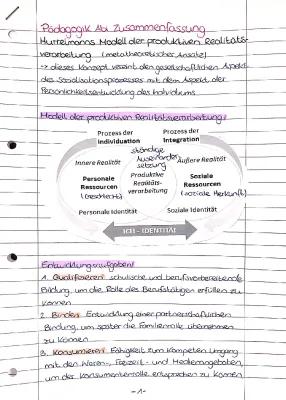 Pädagogik Abi Zusammenfassung
Hurrelmanns Modell der produktiven Realitäts-
verarbeitung (metatheoretischer Ansatz)
→ dieses Konzept vereint den gesellschaftlichen Aspekt
des Sozialisationsprozesses mit dem Aspekt der
Persönlichkeitsentwicklung des Individuums
Modell der produktiven Realitätsverarbeitung:
Prozess der Individuation
Prozess der Integration
ständige Auseinandersetzung
Innere Realität
Äußere Realität
Personale Ressourcen
Produktive Realitäts-verarbeitung
Soziale Ressourcen
(soziale Herkunft)
Personale Identität
Soziale Identität
ICH - IDENTITÄT
Entwicklungsaufgaben:
1. Qualifizieren: schulische und berufsvorbereitende
Bildung, um die Rolle des Berufstätigen erfüllen zu
können
2. Binden: Entwicklung einer partnerschaftlichen
Bindung, um später die Familienrolle übernehmen
zu können
3. Konsumieren: Fähigkeit zum kompeten Umgang
mit den Waren-, Freizeit- und Medienangeboten,
um der Konsumentenrolle entsprechen zu können
-1-